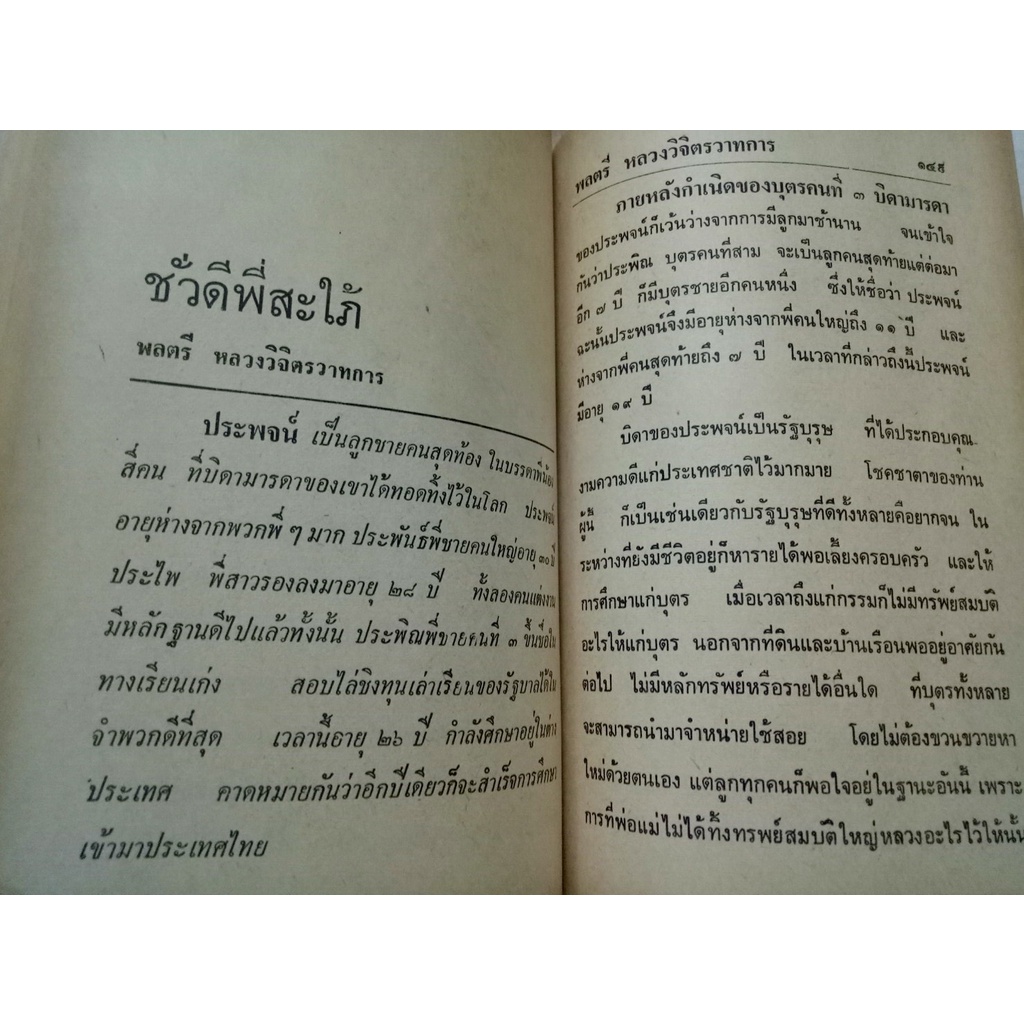 ชั่วดีพี่สะใภ้
พลตรี หลวงวิจิตรวาทการ
ประพจน์ เป็นลูกชายคนสุดท้อง ในบรรดาพี่น้อง
สี่คน ที่บิดามารดาของเขาได้ทอดทิ้งไว้ในโลก ประพจน์
อายุห่างจากพวกพี่ ๆ มาก ประพันธ์พี่ชายคนใหญ่อายุ ๓๐ ปี
ประไพ พี่สาวรองลงมาอายุ ๒๘ ปี ทั้งสองคนแต่งงาน
มีหลักฐานดีไปแล้วทั้งนั้น ประพิณพี่ชายคนที่ ๓ ขึ้นชื่อใน
ทางเรียนเก่ง สอบไล่ชิงทุนเล่าเรียนของรัฐบาลได้ใน
จำพวกดีที่สุด เวลานี้อายุ ๒๖ ปี กำลังศึกษาอยู่ในต่าง
ประเทศ คาดหมายกันว่าอีกปีเดียวก็จะสำเร็จการศึกษา
เข้ามาประเทศไทย
พลตรี หลวงวิจิตรวาทการ
ภายหลังกำเนิดของบุตรคนที่ ๓ บิดามารดา
ของประพจน์ก็เว้นว่างจากการมีลูกมาช้านาน จนเข้าใจ
กันว่าประพิณ บุตรคนที่สาม จะเป็นลูกคนสุดท้ายแต่ต่อมา
อีก ๗ ปี ก็มีบุตรชายอีกคนหนึ่ง ซึ่งให้ชื่อว่า ประพจน์
ฉะนั้นประพจน์จึงมีอายุห่างจากพี่คนใหญ่ถึง ๑๑ ปี และ
ห่างจากพี่คนสุดท้ายถึง ๗ ปี ในเวลาที่กล่าวถึงนี้ประพจน์
มีอายุ ๑๙ ปี
บิดาของประพจน์เป็นรัฐบุรุษ ที่ได้ประกอบคุณ
งามความดีแก่ประเทศชาติไว้มากมาย โชคชาตาของท่าน
ผู้นี้ ก็เป็นเช่นเดียวกับรัฐบุรุษที่ดีทั้งหลายคือยากจน ใน
ระหว่างที่ยังมีชีวิตอยู่ก็หารายได้พอเลี้ยงครอบครัว และให้
การศึกษาแก่บุตร เมื่อเวลาถึงแก่กรรมก็ไม่มีทรัพย์สมบัติ
อะไรให้แก่บุตร นอกจากที่ดินและบ้านเรือนพออยู่อาศัยกัน
ต่อไป ไม่มีหลักทรัพย์หรือรายได้อื่นใด ที่บุตรทั้งหลาย
จะสามารถนำมาจำหน่ายใช้สอย โดยไม่ต้องขวนขวายหา
ใหม่ด้วยตนเอง แต่ลูกทุกคนก็พอใจอยู่ในฐานะอันนี้ เพราะ
การที่พ่อแม่ไม่ได้ทิ้งทรพย์สมบัติใหญ่หลวงอะไรไว้ให้นั้น